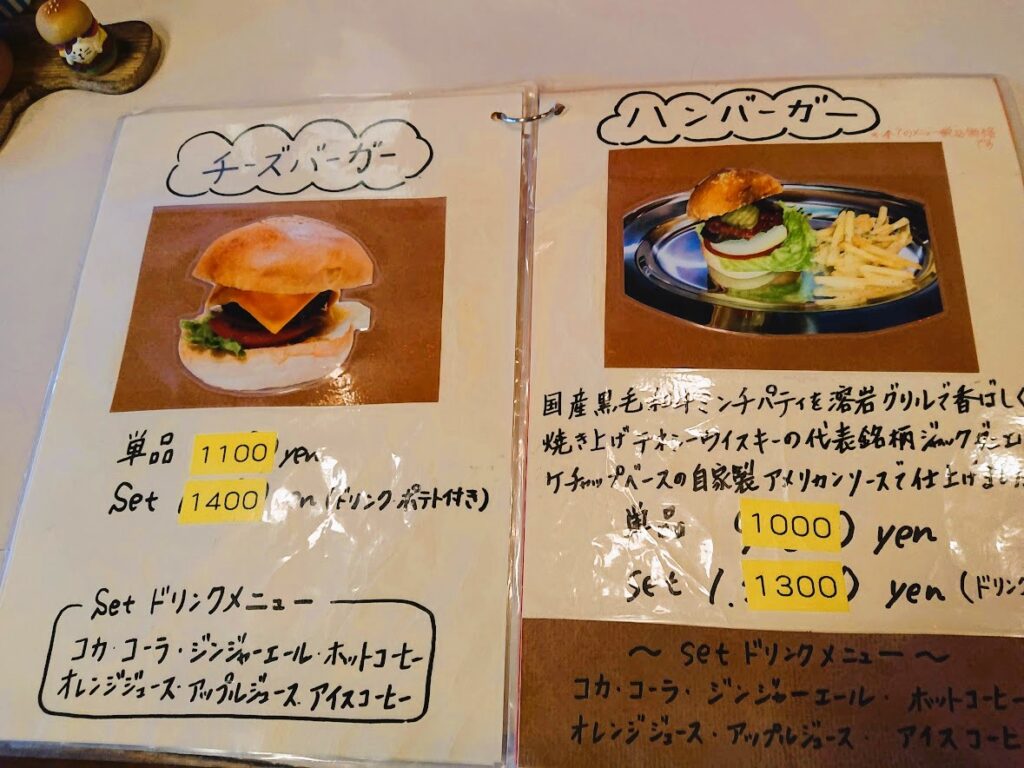 チーズバーガー
単品 1100 yen
Set 1400 yen (ドリンク・ポテト付き)
Set ドリンクメニュー
コカ・コーラ・ジンジャーエール・ホットコーヒー
オレンジジュース・アップルジュース・アイスコーヒー
ハンバーガー
国産黒毛和牛ミンチパティを溶岩グリルで香ばしく
焼き上げテネシーウイスキーの代表銘柄ジャックダニエ
ケチャップベースの自家製アメリカンソースで仕上げました
単品 1000 yen
Set 1300 yen (ドリンク
～ Set ドリンクメニュー ～
コカ・コーラ・ジンジャーエール・ホットコーヒー
オレンジジュース・アップルジュース・アイスコーヒ